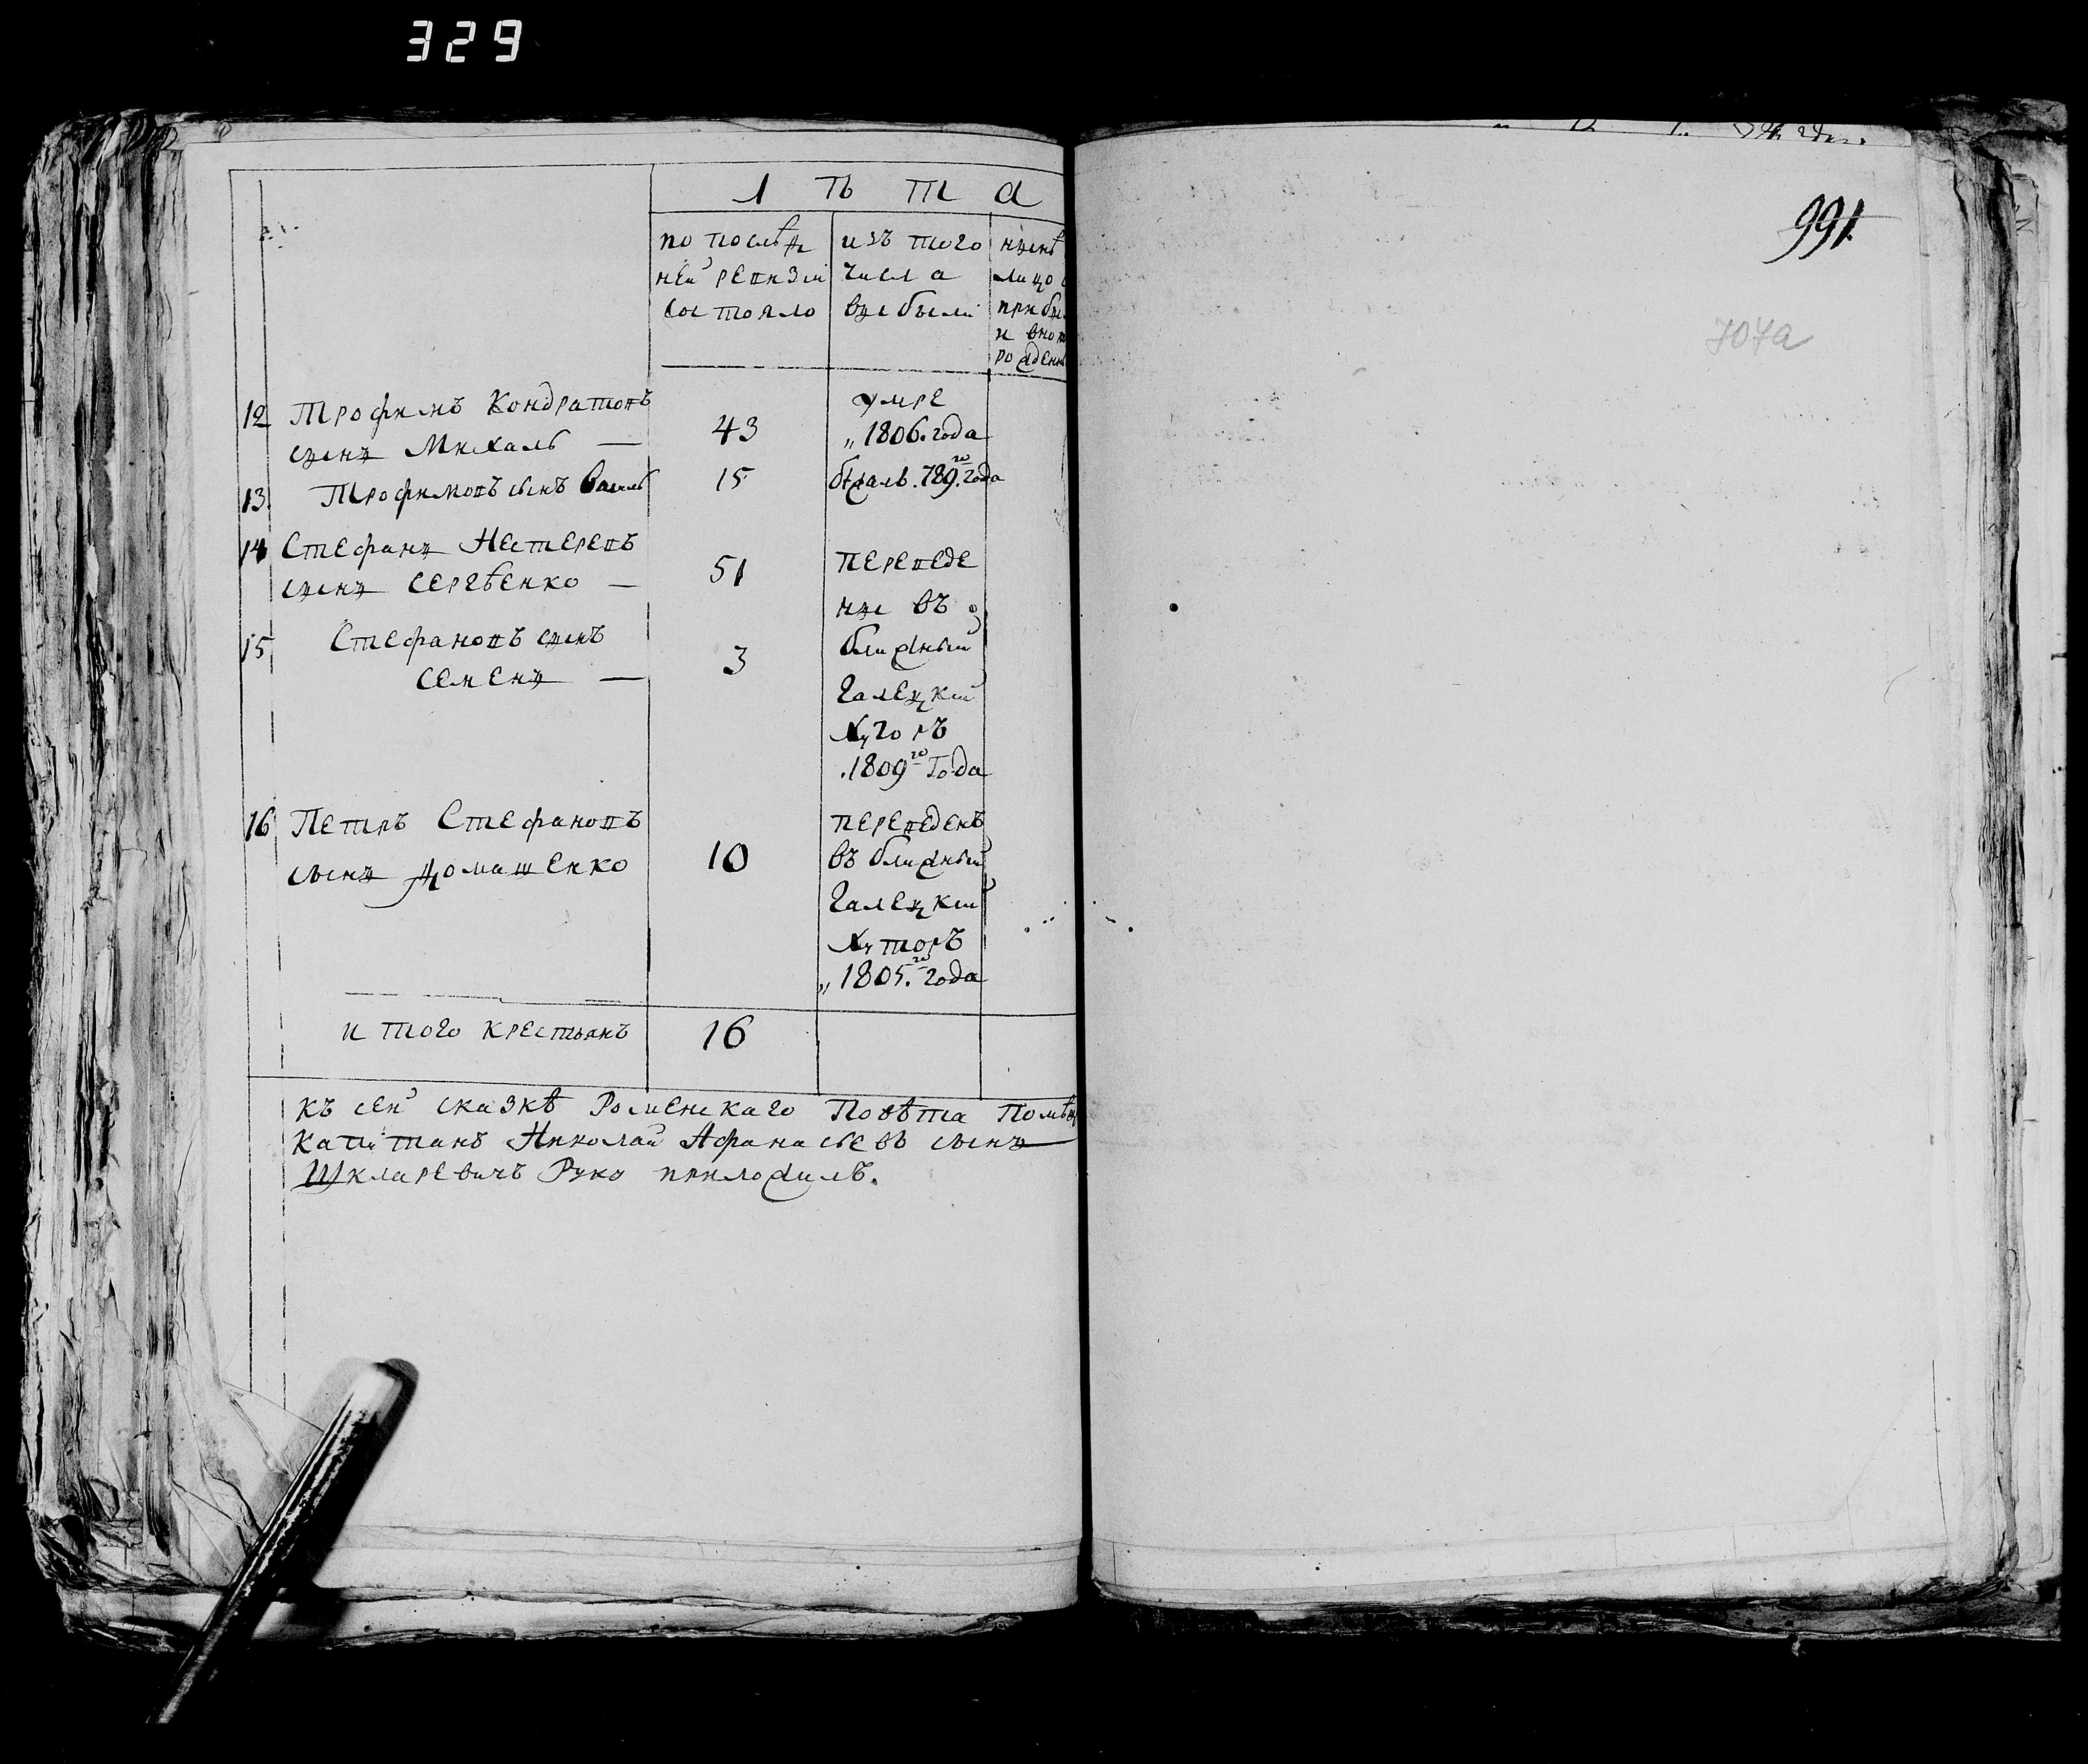 329
лѣта
по послѣд
ней ревизіи
состояло
изъ того
числа
выбыли
нынѣ
лицо
прибы
и вно
рожден
12 Трофимъ Кондратовъ
сынъ Михаль —
43
умре
„1806. года
13 Трофимовъ сынъ Василь
15
бѣжалъ. 789.го года
14 Стефанъ Нестеревъ
сынъ Сергѣенко —
51
переведе
ны въ
15 Стефановъ сынъ
Семенъ —
3
ближный
Галецкій
Хугоръ
.1809го Года
16 Петръ Стефановъ
сынъ Домашенко
10
переведенъ
въ ближный
Галецкій
Хуторъ
„1805.го года
и того крестьянъ
16
Къ сей сказкѣ Роменскаго Повѣта Помѣщ
Капитанъ Николай Афанасьевъ сынъ
Шкларевичъ Руку приложилъ.
991
707а